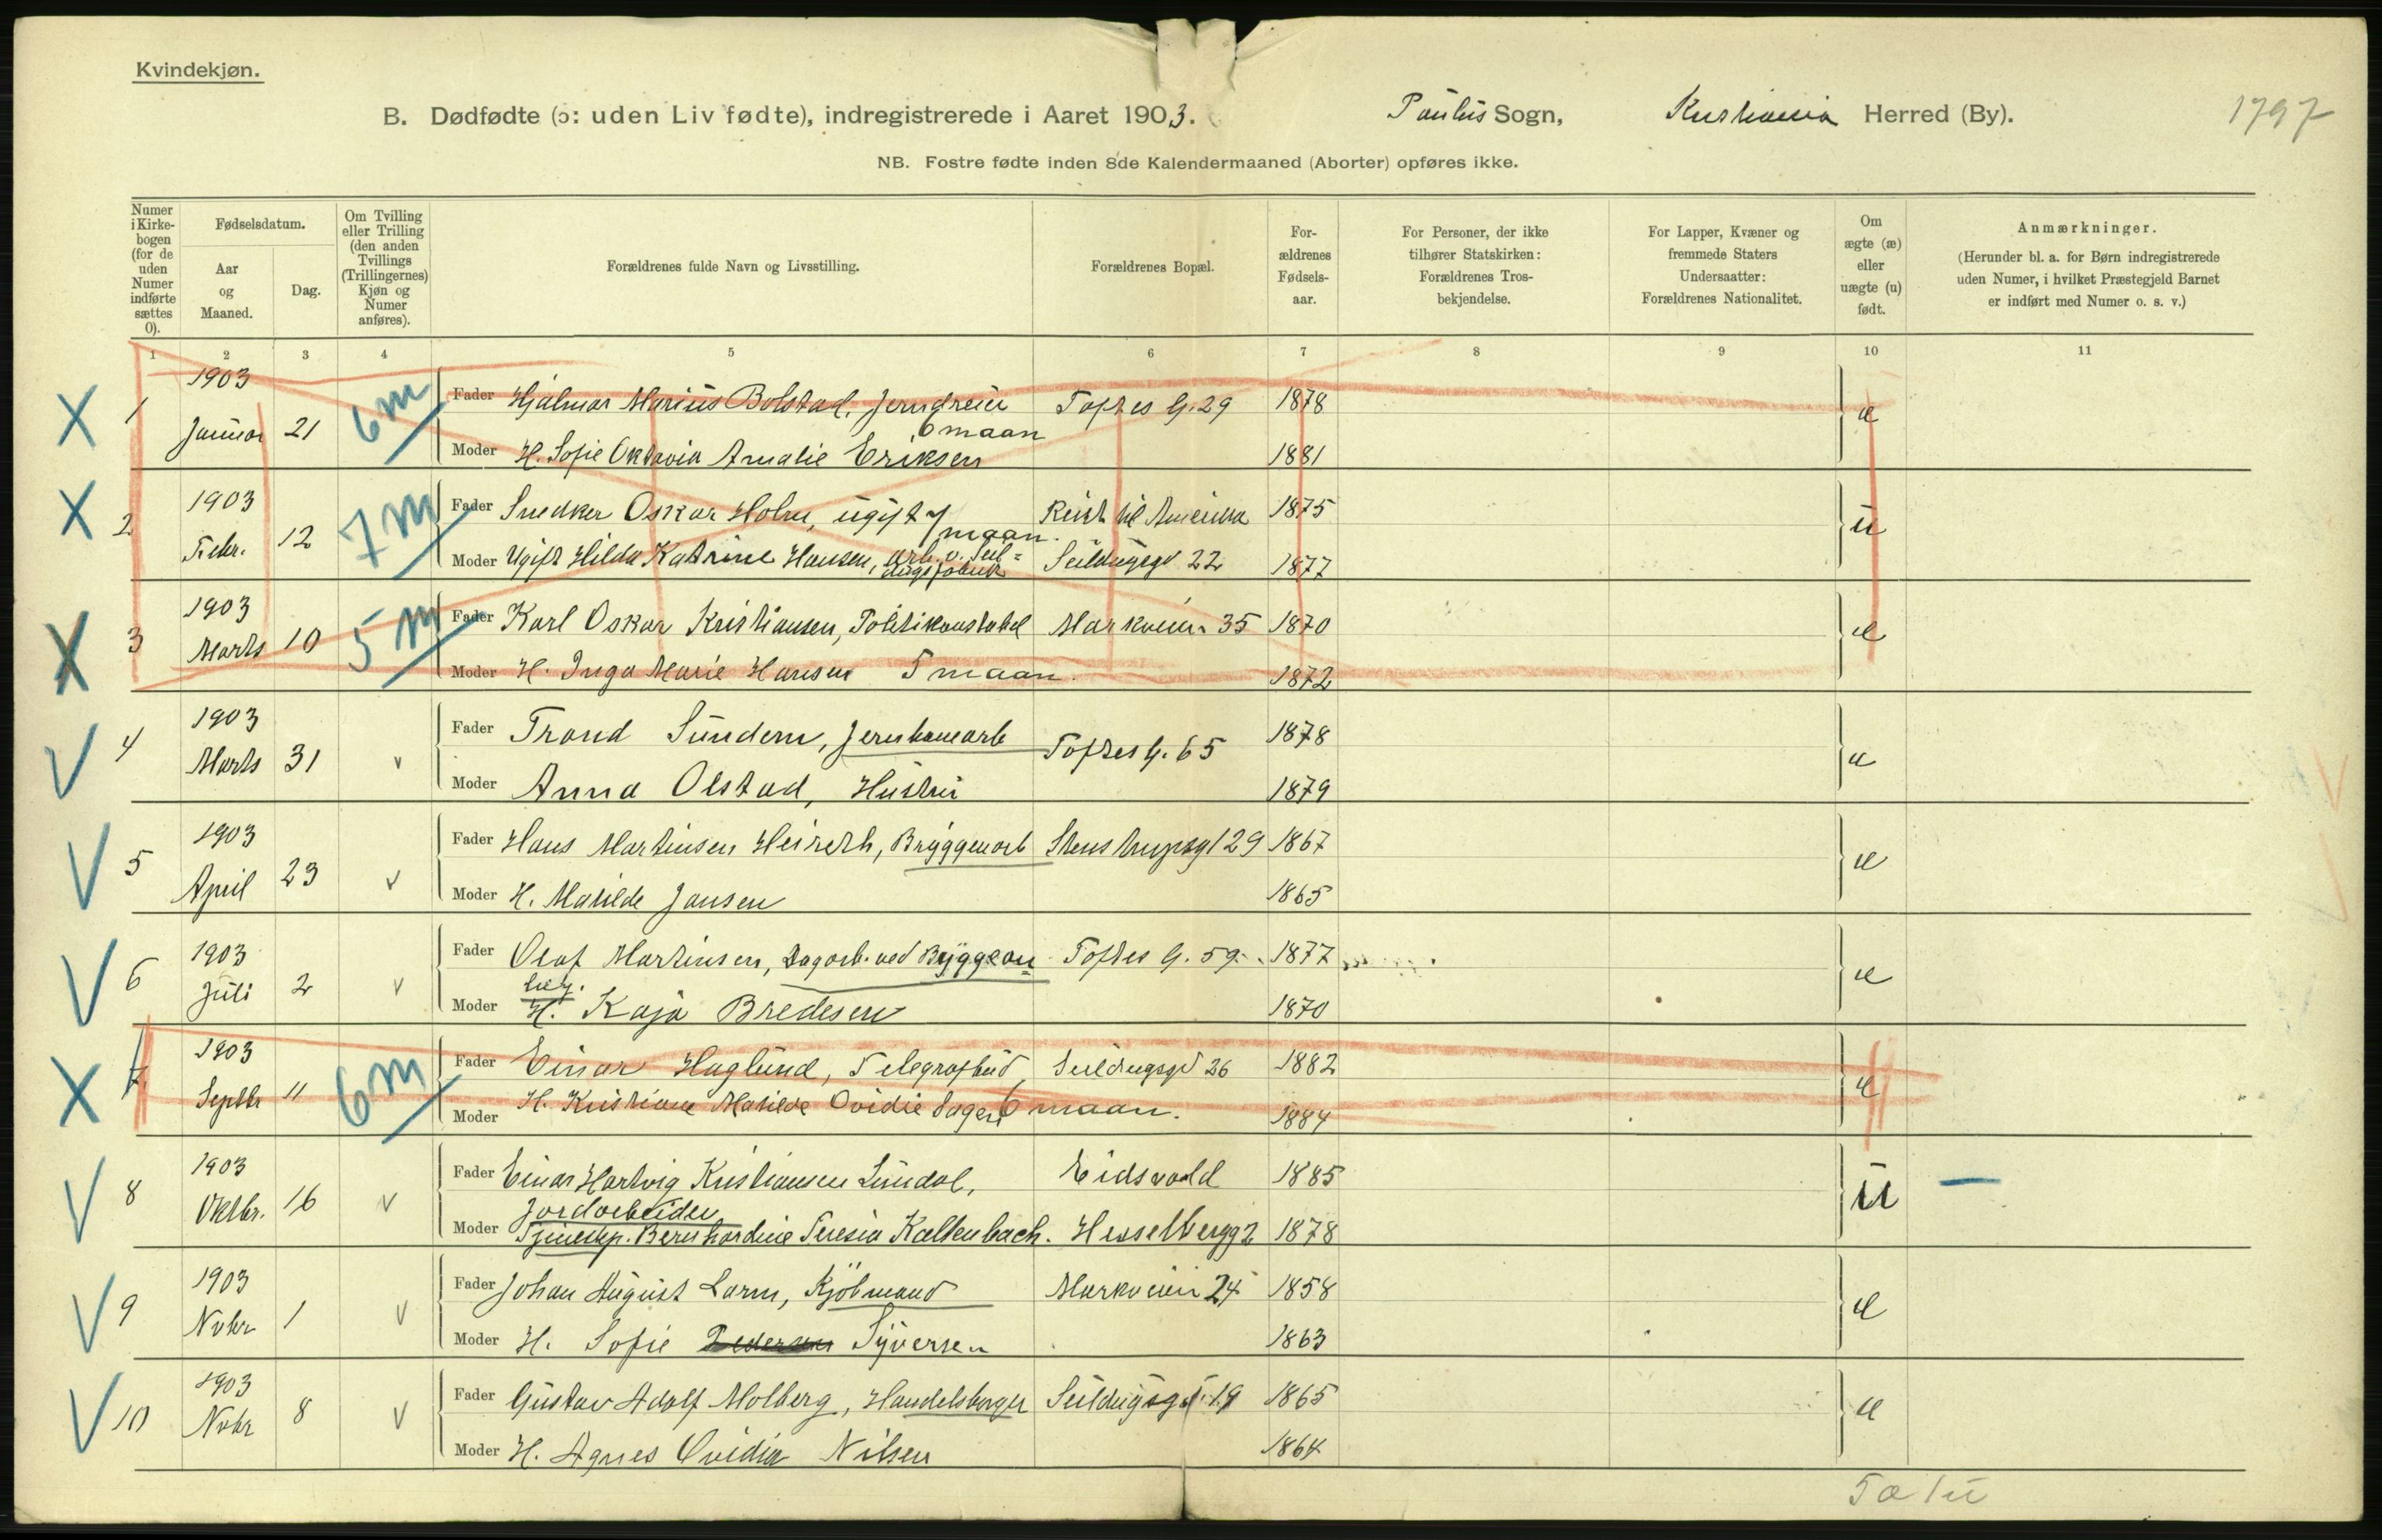 Kvindekjøn.
B. Dødfødte (ɔ: uden Liv fødte), indregistrerede i Aaret 1903. Paulus Sogn, Kristiania Herred (By). 1797
NB. Fostre fødte inden 8de Kalendermaaned (Aborter) opføres ikke.
Numer i Kirke-bogen (for de uden Numer indførte sættes 0).
Fødselsdatum.
Aar og Maaned.
Dag.
Om Tvilling eller Trilling (den anden Tvillings (Trillingernes) Kjøn og Numer anføres).
Forældrenes fulde Navn og Livsstilling.
Forældrenes Bopæl.
For-ældrenes Fødsels-aar.
For Personer, der ikke tilhører Statskirken: Forældrenes Tros-bekjendelse.
For Lapper, Kvæner og fremmede Staters Undersaatter: Forældrenes Nationalitet.
Om ægte (æ) eller uægte (u) født.
Anmærkninger.
(Herunder bl. a. for Børn indregistrerede uden Numer, i hvilket Præstegjeld Barnet er indført med Numer o. s. v.)
1 2 3 4 5 6 7 8 9 10 11
X 1 1903 Januar 21 6m Fader Hjalmar Marius Bolstad, Jerndreier Toftes G. 29 1878 æ
6 maan
Moder H. Sofie Oktavia Amalie Eriksen 1881
X 2 1903 Febr. 12 7m Fader Snedker Oskar Holm, ugift Reist til Amerika 1875 u
7 maan.
Moder Ugift Hilda Katrine Hansen, arb. v. Seil=dugsfabrik Seildugsgd 22 1877
X 3 1903 Marts 10 5m Fader Karl Oskar Kristiansen, Politikonstabel Markveien 35 1870 æ
Moder H. Inga Marie Hansen 5 maan. 1872
V 4 1903 Marts 31 v Fader Trond Sundem, Jernbanearb Toftes G. 65 1878 æ
Moder Anna Olstad, Hustru 1879
V 5 1903 April 23 v Fader Hans Martinsen Heireth, Bryggeriarb Stenstrupsgd 29 1867 æ
Moder H. Matilde Jansen 1865
V 6 1903 Juli 2 v Fader Olaf Martinsen, Dagarb. ved Byggean= Toftes G. 59. 1877 æ
læg.
Moder H. Kaja Bredesen 1870
X 7 1903 Septbr 11 6m Fader Einar Haglund, Telegrafbud Seildugsgd 26 1882 æ
Moder H. Kristiane Matilde Ovidie Sagen 6 maan. 1884
V 8 1903 Oktbr. 16 v Fader Einar Hartvig Kristiansen Lundal, Eidsvold 1885 u —
Jordarbeider
Moder Tjenestep. Bernhardine Teresia Kaltenbach. Hesselbergg 2 1878
V 9 1903 Nvbr 1 v Fader Johan August Larm, Kjøbmand Markveien 24 1858 æ
Moder H. Sofie Pedersen Syversen 1863
V 10 1903 Nvbr 8 v Fader Gustav Adolf Molberg, Handelsborger Seildugsgd. 19 1865 æ
Moder H. Agnes Ovidia Nilsen 1864
5æ 1u